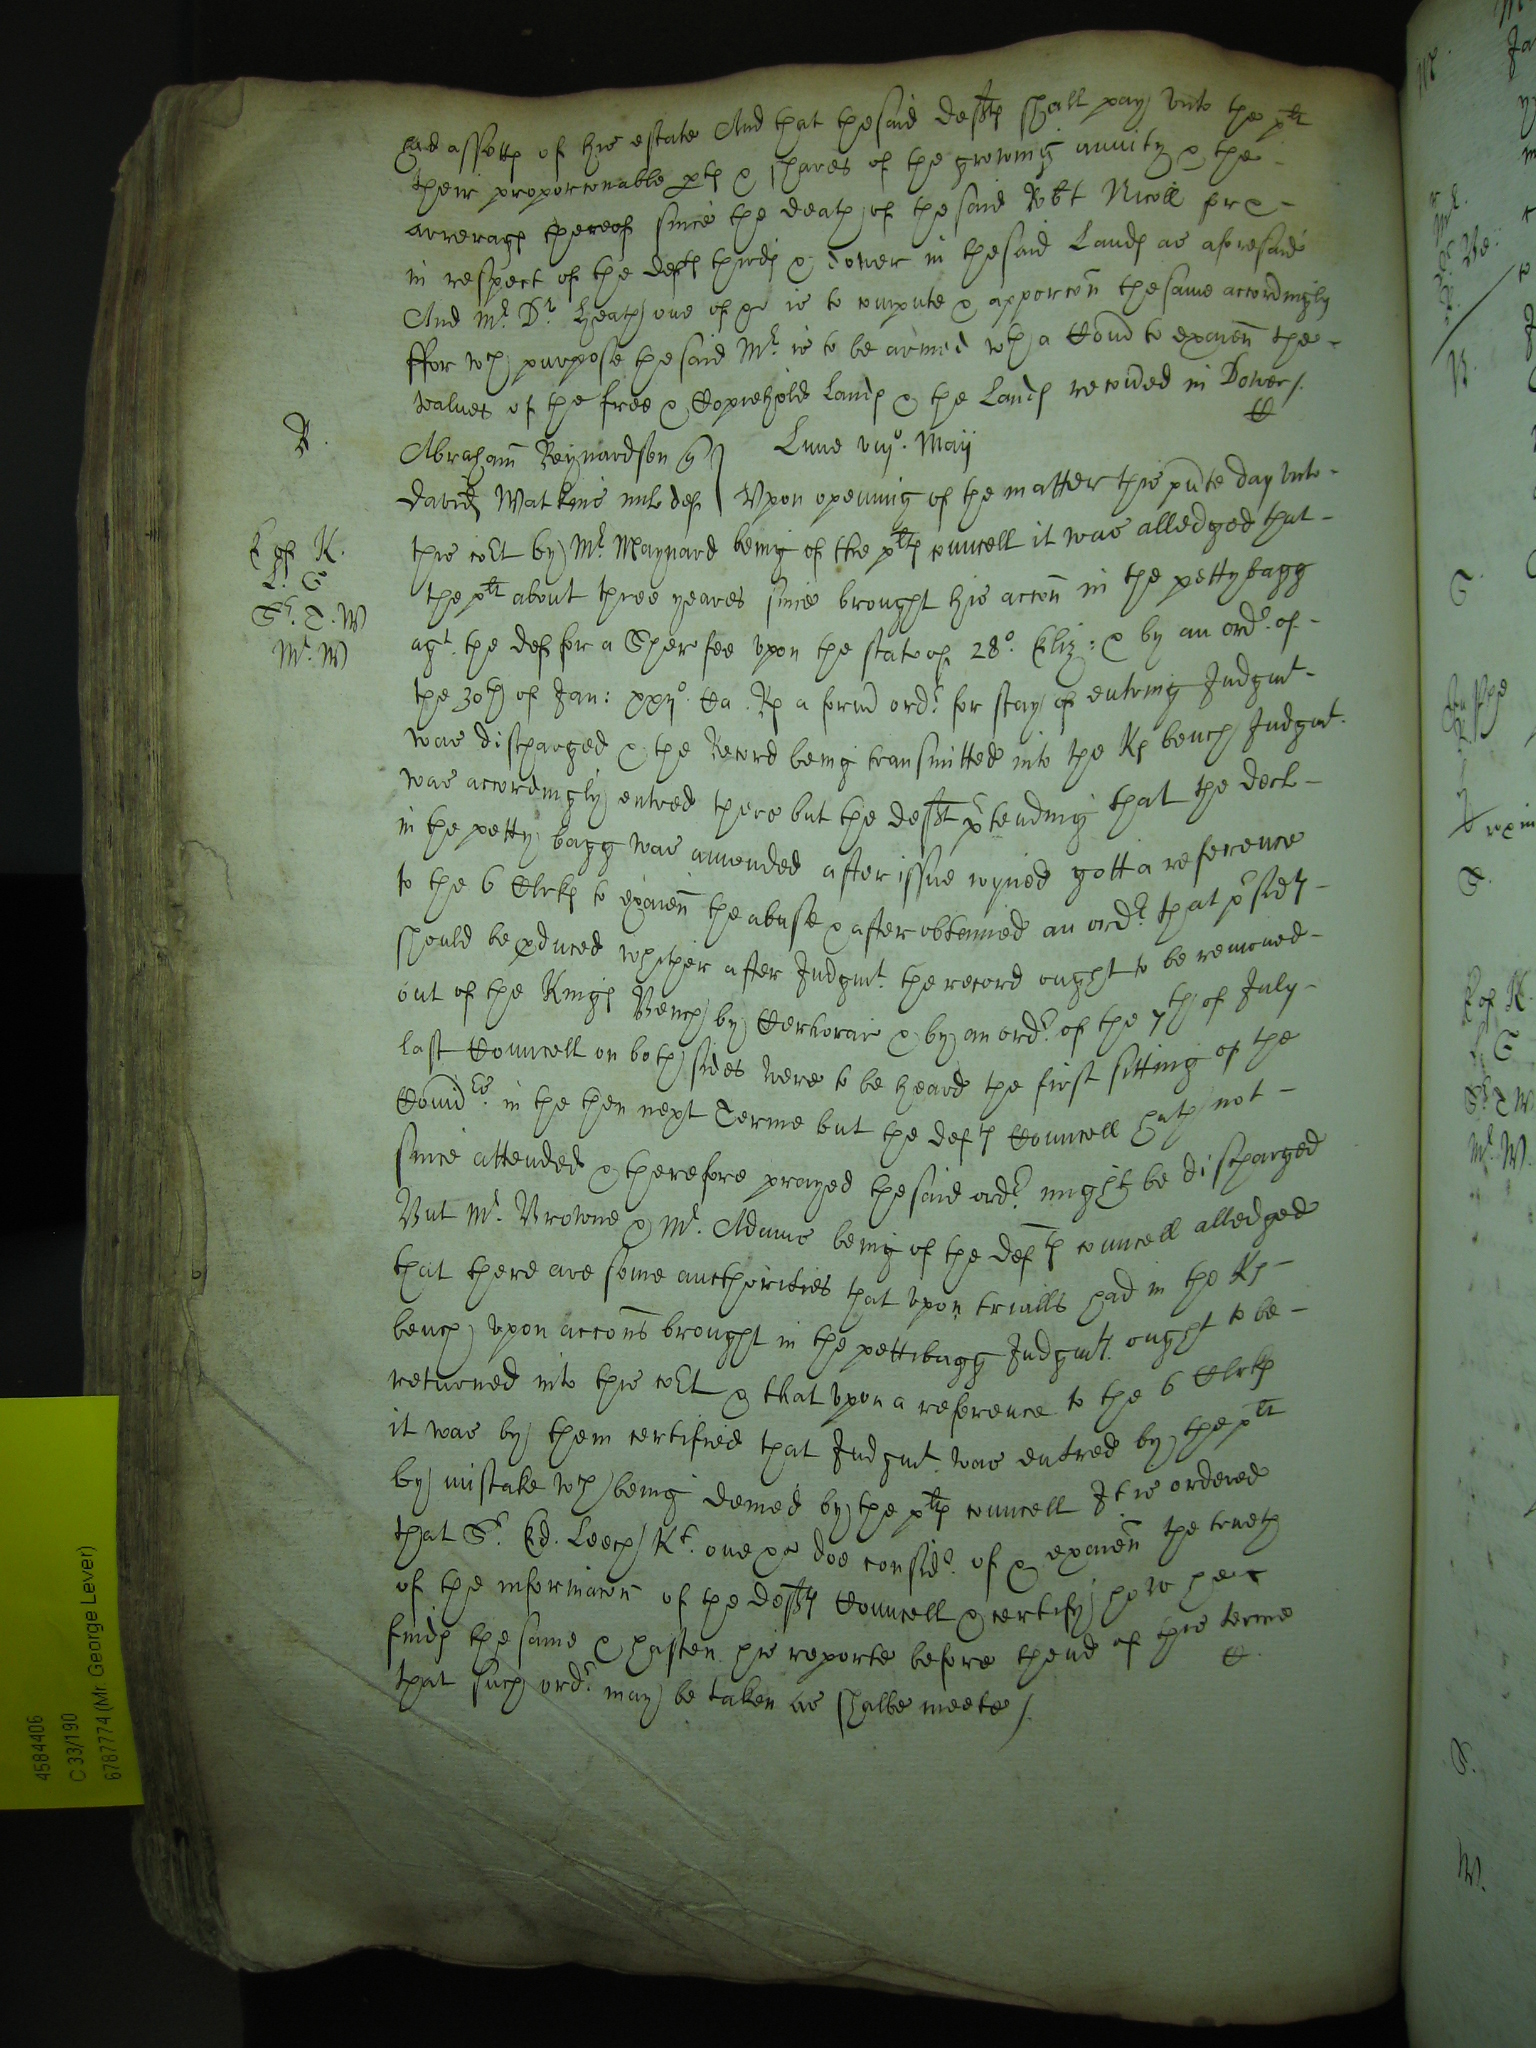 had assetts of his estate And that the said defts shall pay unto the plt
their proporconable pts & shares of the growing anuity & the
arrerags thereof since the death of the said Robt Nicoll
in respect of the defts thirds & dower in the said Lands as aforesaid
And Mr. Dr. Heath one of &c is to compute & apporcon the same accordingly
ffor wch purpose the said Mr. is to be armed wth a Comd to examen the
values of the free & Copiehold Lands & the Lands recoued in Dower /.
R.
Abraham Reynardson q
Lune viijo. Maij
David Watkins milt def
Upon openning of the matter this pnte day unto
E of K.
this cort by Mr. Maynard being of the plts councell it was alledged that
L. G
the plt about three yeares since brought his accon in the pettybagg
Sr. T. W
agt. the def for a Sherofee upon the state of 28o. Eliz: & by an ordr. of
Mr. W
the 30th of Jan: xxijo. Ca. Rs a formr ordr. for stay of entring Judgmt.
was discharged & the Record being transmitted into the Ks bench Judgmt.
was accordingly entred there but the deft ptending that the decl
in the petty bagg was amended after issue ioyned gott a reference
to the 6 Clrks to examen the abuse & after obteined an ordr. that psidts
should be pduced whither after Judgmt. the record ought to be remoued
out of the Kings Bench by Certiorare & by an ordr. of the 7th of July
last Councell on both sides were to be heard the first sitting of the
in the then next Terme but the defts Councell hath not
since attended & therefore prayed the said ordr. might be discharged
But Mr. Browne & Mr. Adams being of the defts councell alledged
that there are some authorities that upon trialls had in the Ks
bench upon accons brought in the pettibagg Judgmts. ought to be
returned into this cort & that upon a reference to the 6 Clrks
it was by them certified that Judgmt was entred by the plt
by mistake wch being denied by the plts councell It is ordered
that Sr. Ed. Leech Kt. one &c doe considr. of & examen the trueth
of the informacon of the defts Councell & certify how hee
finds the same & hasten his reporte before thend of this terme
that such ordr. may be taken as shalbe meete /.
4584406
C 33/190
6787774 (Mr. George Lever)
E of K.
L G
Sr. T W
Mr. W.